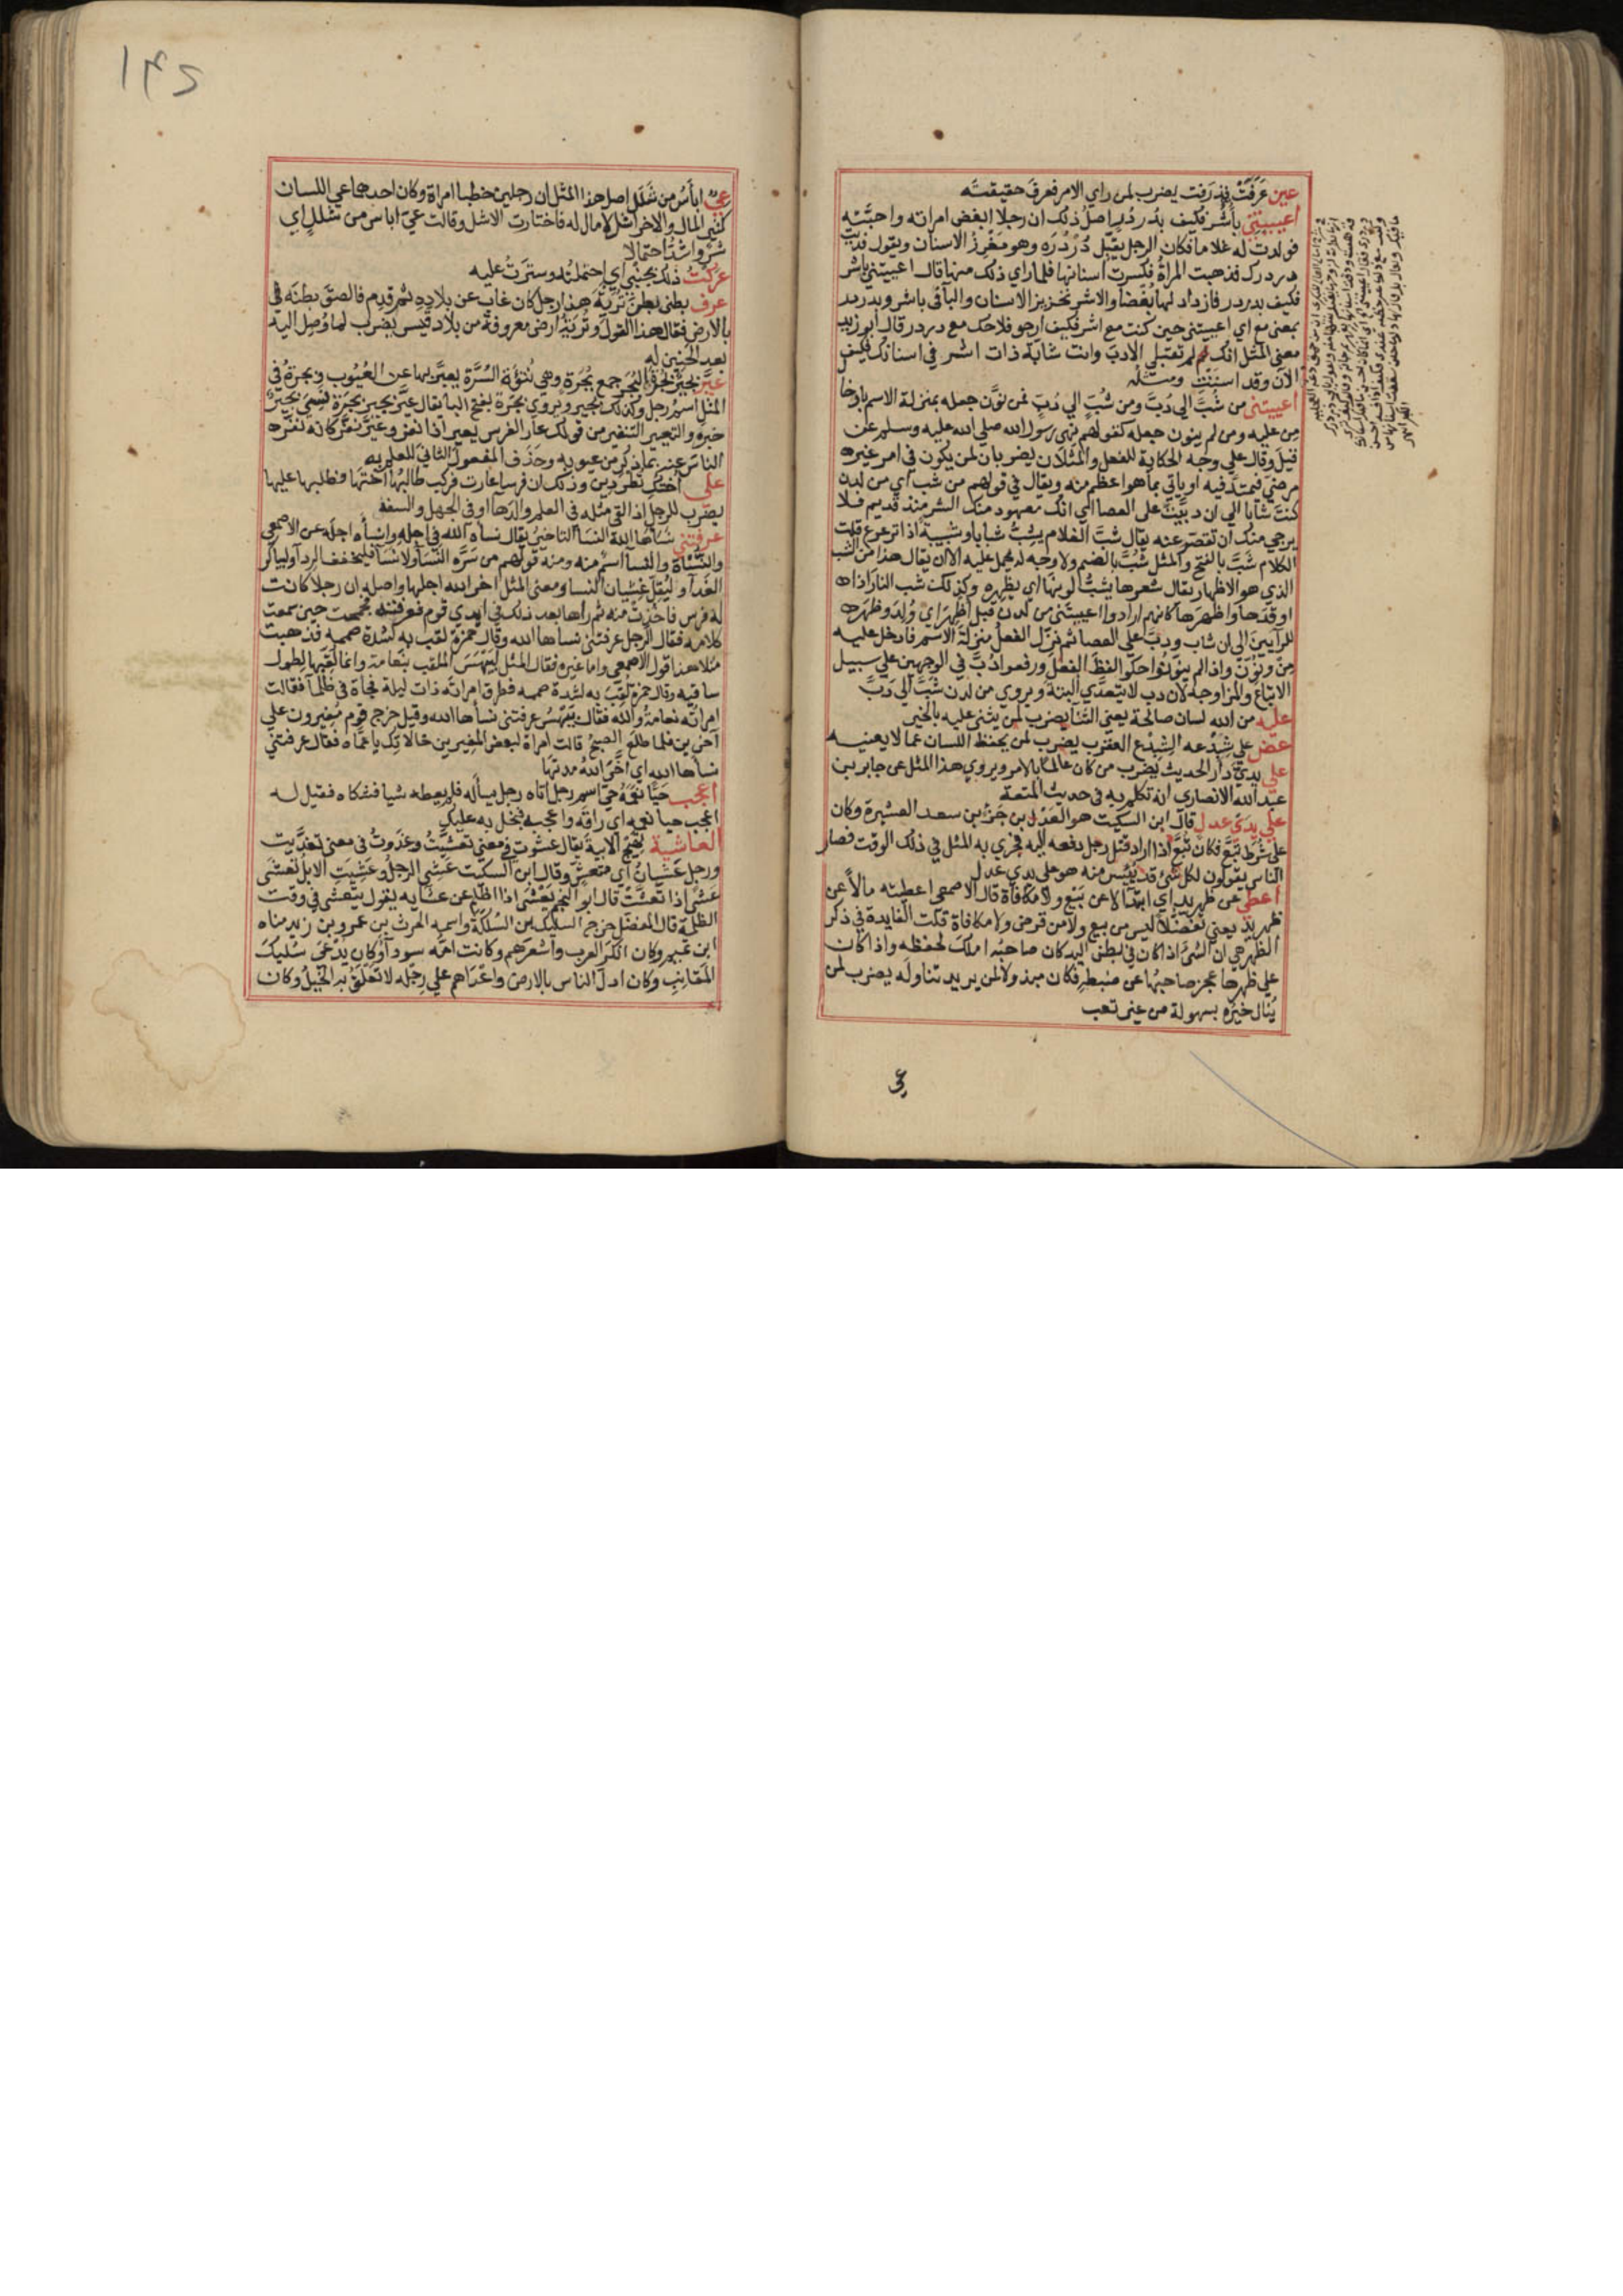 عين عرفت فذرفت يضرب لمن راي الامر فعرف حقيقته
أعييتني بأشر فكيف بدردر اصل ذلك ان رجلا ابغض امراته واحبته
فولدت له غلاما فكان الرجل يقبل دردره وهو مغرز الاسنان ويقول فديت
دردرك فذهبت المراة فكسرت اسنانها فلما راي ذلك منها قال اعييتني باشر
فكيف بدردر فازداد لها بغضا والاشر تحزيز الاسنان والبا في باشر وبدردر
بمعني مع اي اعييتني حين كنت مع اشر فكيف ارجو فلاحك مع دردر قال ابو زيد
معني المثل انك لم تقبلي الادب وانت شابة ذات اشر في اسنانك فكيف
الآن وقد اسننت ومثله
أعييتني من شب الي دب ومن شب الي دب فمن نون جعله بمنزلة الاسم بادخال
من عليه ومن لم ينون جعله كقولهم نهي رسول الله صلي الله عليه وسلم عن
قيل وقال علي وجه الحكاية للفعل والمثلان يضربان لمن يكون في امر غيره
مرضي فيمتد فيه او ياتي بما هو اعظم منه ويقال في قولهم من شب اي من لدن
كنت شابا الي ان دببت علي العصا اي انك معهود منك الشر منذ قديم فلا
يرجي منك ان تقصر عنه يقال شب الغلام يشب شبابا وشبيبة اذا ترعرع قلت
الكلام شب بالفتح والمثل شب بالضم ولا وجه له يحمل عليه الا ان يقال هذا من الشب
الذي هو الاظهار يقال شعرها يشب لونها اي يظهره وكذلك شب النار اذا
اوقدها واظهرها كانهم ارادوا اعييتني من لدن قيل اظهر اي ولد وظهر
للرآيين الي ان شاب ودب علي العصا ثم نزل الفعل منزلة الاسم فادخل عليه
من ونون واذا لم ينونوا حكوا لفظ الفعل ورفعوا دب في الوجهين علي سبيل
الاتباع والمزاوجة لان دب لا يتعدي البتة ويروي من لدن شب الي دب
عليه من الله لسان صالحة يعني الثنا يضرب لمن يثني عليه بالخير
عض علي شبدعه الشبدع العقرب يضرب لمن يحفظ اللسان عما لا يعنيه
علي يدي دار الحديث يضرب من كان عالما بالامر ويروي هذا المثل عن جابر بن
عبد الله الانصاري انه تكلم به في حديث المتعة
علي يدي عدل قال ابن السكيت هو العدل بن جزء بن سعد العشيرة وكان
علي شرط تبع فكان تبع اذا اراد قتل رجل دفعه اليه فجري به المثل في ذلك الوقت فصار
الناس يقولون لكل شي قد يئس منه هو علي يدي عدل
أعطي عن ظهر يد اي ابتدا لا عن بيع ولا مكافاة قال الاصمعي اعطيته مالا عن
ظهر يد يعني تفضلا ليس من بيع ولا من قرض ولا مكافاة قلت الفايدة في ذكر
الظهر هي ان الشي اذا كان في بطن اليد كان صاحبه املك لحفظه واذا كان
علي ظهرها عجز صاحبها عن ضبطه فكان مبذولا لمن يريد تناوله يضرب لمن
ينال خيره بسهولة من غير تعب
عي
١٤٥
عي اباس من شلل اصل هذا المثل ان رجلين خطبا امراة وكان احدهما عي اللسان
كثير المال والاخر اشل لا مال له فاختارت الاشل وقالت عي اباس من شلل اي
شر واشد احتمالا
عركت ذلك بجنبي اي احتملته وسترت عليه
عرف بطني بطن تربة هذا رجل كان غاب عن بلاده ثم قدم فالصق بطنه في
بالارض فقال هذا القول وتربة ارض معروفة من بلاد قيس يضرب لما وصل اليه
بعد الحنين له
عير بجير بجره البجر جمع بجرة وهي نتوة السرة يعبر بها عن العيوب وبجرة في
المثل اسم رجل وكذلك بجير ويروي بجرة بفتح البا يقال عير بجير بجرة نسي بجير
خبره والتعيير التنفير من قولك عار الفرس يعير اذا نفر وعير نفر كانه نفر
الناس عنه بما ذكر من عيوبه وحذف المفعول الثاني للعلم به
علي اختك تطردين وذلك ان فرسا عارت فركب طالبها اختها وطلبها عليها
يضرب للرجل اذا لقي مثله في العلم والدها او في الجهل والسفه
عرفتني نساها الله النسا التاخير يقال نساه الله في اجله وانساه اجله عن الاصمعي
والنساة والنسا اسم منه ومنه قولهم من سره النسا ولا نسا فليخفف الردا وليباكر
الغدا وليقل غشيان النسا ومعني المثل اخر الله اجلها واصله ان رجلا كانت
له فرس فاخذت منه ثم راها بعد ذلك في ايدي قوم فعرفته فحمحمت حين سمعت
كلامه فقال الرجل عرفتني نساها الله وقال حمزة لقب به لشدة صممه فذهبت
مثلا هذا قول الاصمعي واما غيره فقال المثل لبيهس الملقب بنعامة وانما لقبها لطول
ساقيه وقال حمزة لقب به لشدة صممه فطرق امراته ذات ليلة فجاة في ظلما فقالت
امراته نعامة والله فقال بيهس عرفتني نساها الله وقيل خرج قوم مغيرون علي
آخرين فلما طلع الصبح قالت امراة لبعض المغيرين خالاتك يا عماه فقال عرفتني
نساها الله اي اخر الله مدتها
أعجب حيا نعمه حي اسم رجل اتاه رجل يساله فلم يعطه شيا فشكاه فقيل له
اعجب حيا نعمه اي راقه واعجبه فبخل به عليك
العاشية تهيج الآبية يقال عشوت في معني تعشيت وغدوت في معني تغديت
ورجل عشيان اي متعش وقال ابن السكيت عشي الرجل وعشيت الابل تعشي
عشي اذا تعشت قال ابو النجم يعشي اذا اظلم عن عشايه يقول يتعشي في وقت
الظلمة قال المفضل خرج السليك بن السلكة واسمه الحرث بن عمرو بن زيد مناه
ابن تميم وكان انكر العرب واشعرهم وكانت امه سودا وكان يدعي سليك
المقانب وكان ادل الناس بالارض واعداهم علي رجله لا تعلق به الخيل وكان